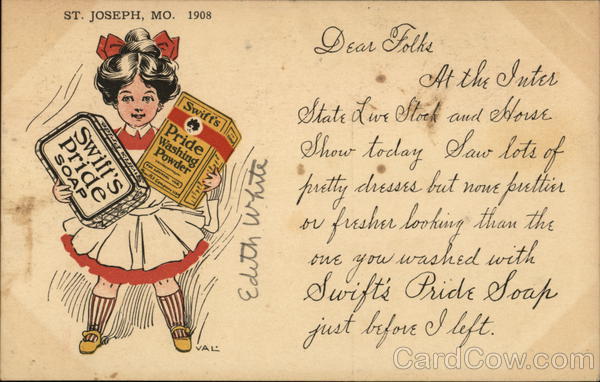 ST. JOSEPH, MO. 1908
Dear Folks
At the Inter
State Live Stock and Horse
Show today Saw lots of
pretty dresses but none prettier
or fresher looking than the
one you washed with
Swift's Pride Soap
just before I left.
Swift's
Pride
SOAP
Swift's
Pride
Washing
Powder
Edith White
VAL
CardCow.com